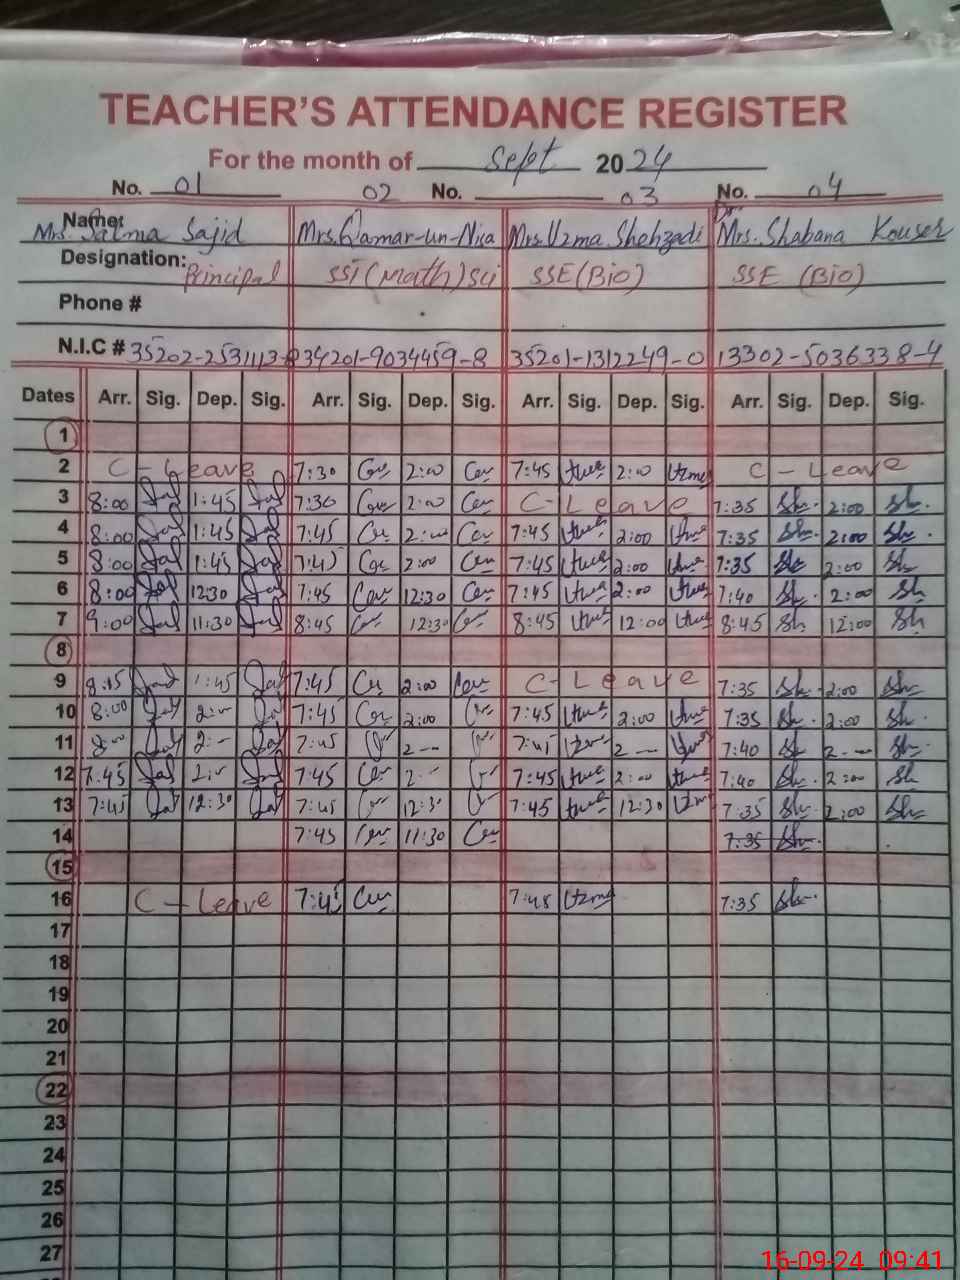 TEACHER'S ATTENDANCE REGISTER
For the month of Sept 2024
No. 01 02 No. 03 No. 04
Name: Mrs. Salma Sajid Mrs. Qamar-un-Nisa Mrs. Uzma Shehzadi Mrs. Shabana Kouser
Designation: Principal SST (Math) Sci SSE (Bio) SSE (Bio)
Phone #
N.I.C # 35202-2531113-8 34201-9034459-8 35201-1312249-0 13302-5036338-4
Dates Arr. Sig. Dep. Sig. Arr. Sig. Dep. Sig. Arr. Sig. Dep. Sig. Arr. Sig. Dep. Sig.
1
2 C-Leave 7:30 2:00 7:45 2:00 Uzma C-Leave
3 8:00 1:45 7:30 2:00 C-Leave 7:35 Sh. 2:00 Sh.
4 8:00 1:45 7:45 2:00 7:45 2:00 7:35 Sh. 2:00 Sh.
5 8:00 1:45 7:45 2:00 7:45 2:00 7:35 Sh 2:00 Sh
6 8:00 12:30 7:45 12:30 7:45 2:00 7:40 Sh. 2:00 Sh
7 9:00 11:30 8:45 12:30 8:45 12:00 8:45 Sh 12:00 Sh
8
9 8:15 1:45 7:45 2:00 C-Leave 7:35 Sh. 2:00 Sh
10 8:00 2:- 7:45 2:00 7:45 2:00 7:35 Sh. 2:00 Sh.
11 8:00 2:- 7:45 2 - 7:45 2 - 7:40 Sh 2 - Sh.
12 7:45 2:- 7:45 2:- 7:45 2:00 7:40 Sh. 2:00 Sh
13 7:45 12:30 7:45 12:30 7:45 12:30 7:35 Sh. 2:00 Sh.
14 7:45 11:30 7:35 Sh.
15
16 C-Leave 7:45 7:45 Uzma 7:35 Sh.
17
18
19
20
21
22
23
24
25
26
27
16-09-24 09:41